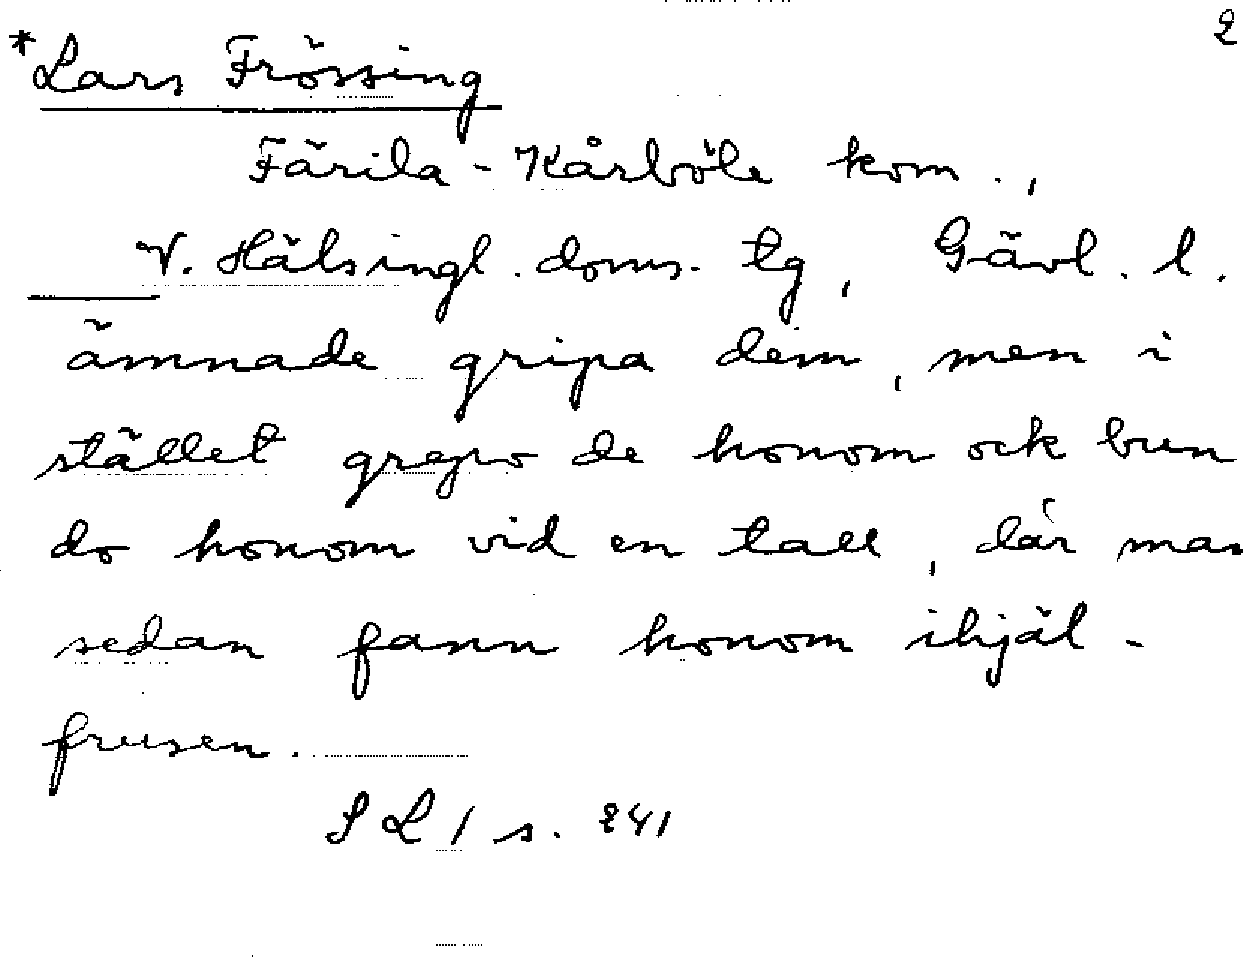 2
*Lars Frössing
Färila-Kårböle kom.,
V. Hälsingl. doms. tg, Gävl. l.
ämnade gripa dem, men i
stället grepo de honom ock bun
do honom vid en tall, där man
sedan fann honom ihjäl-
frusen.
S L 1 s. 241